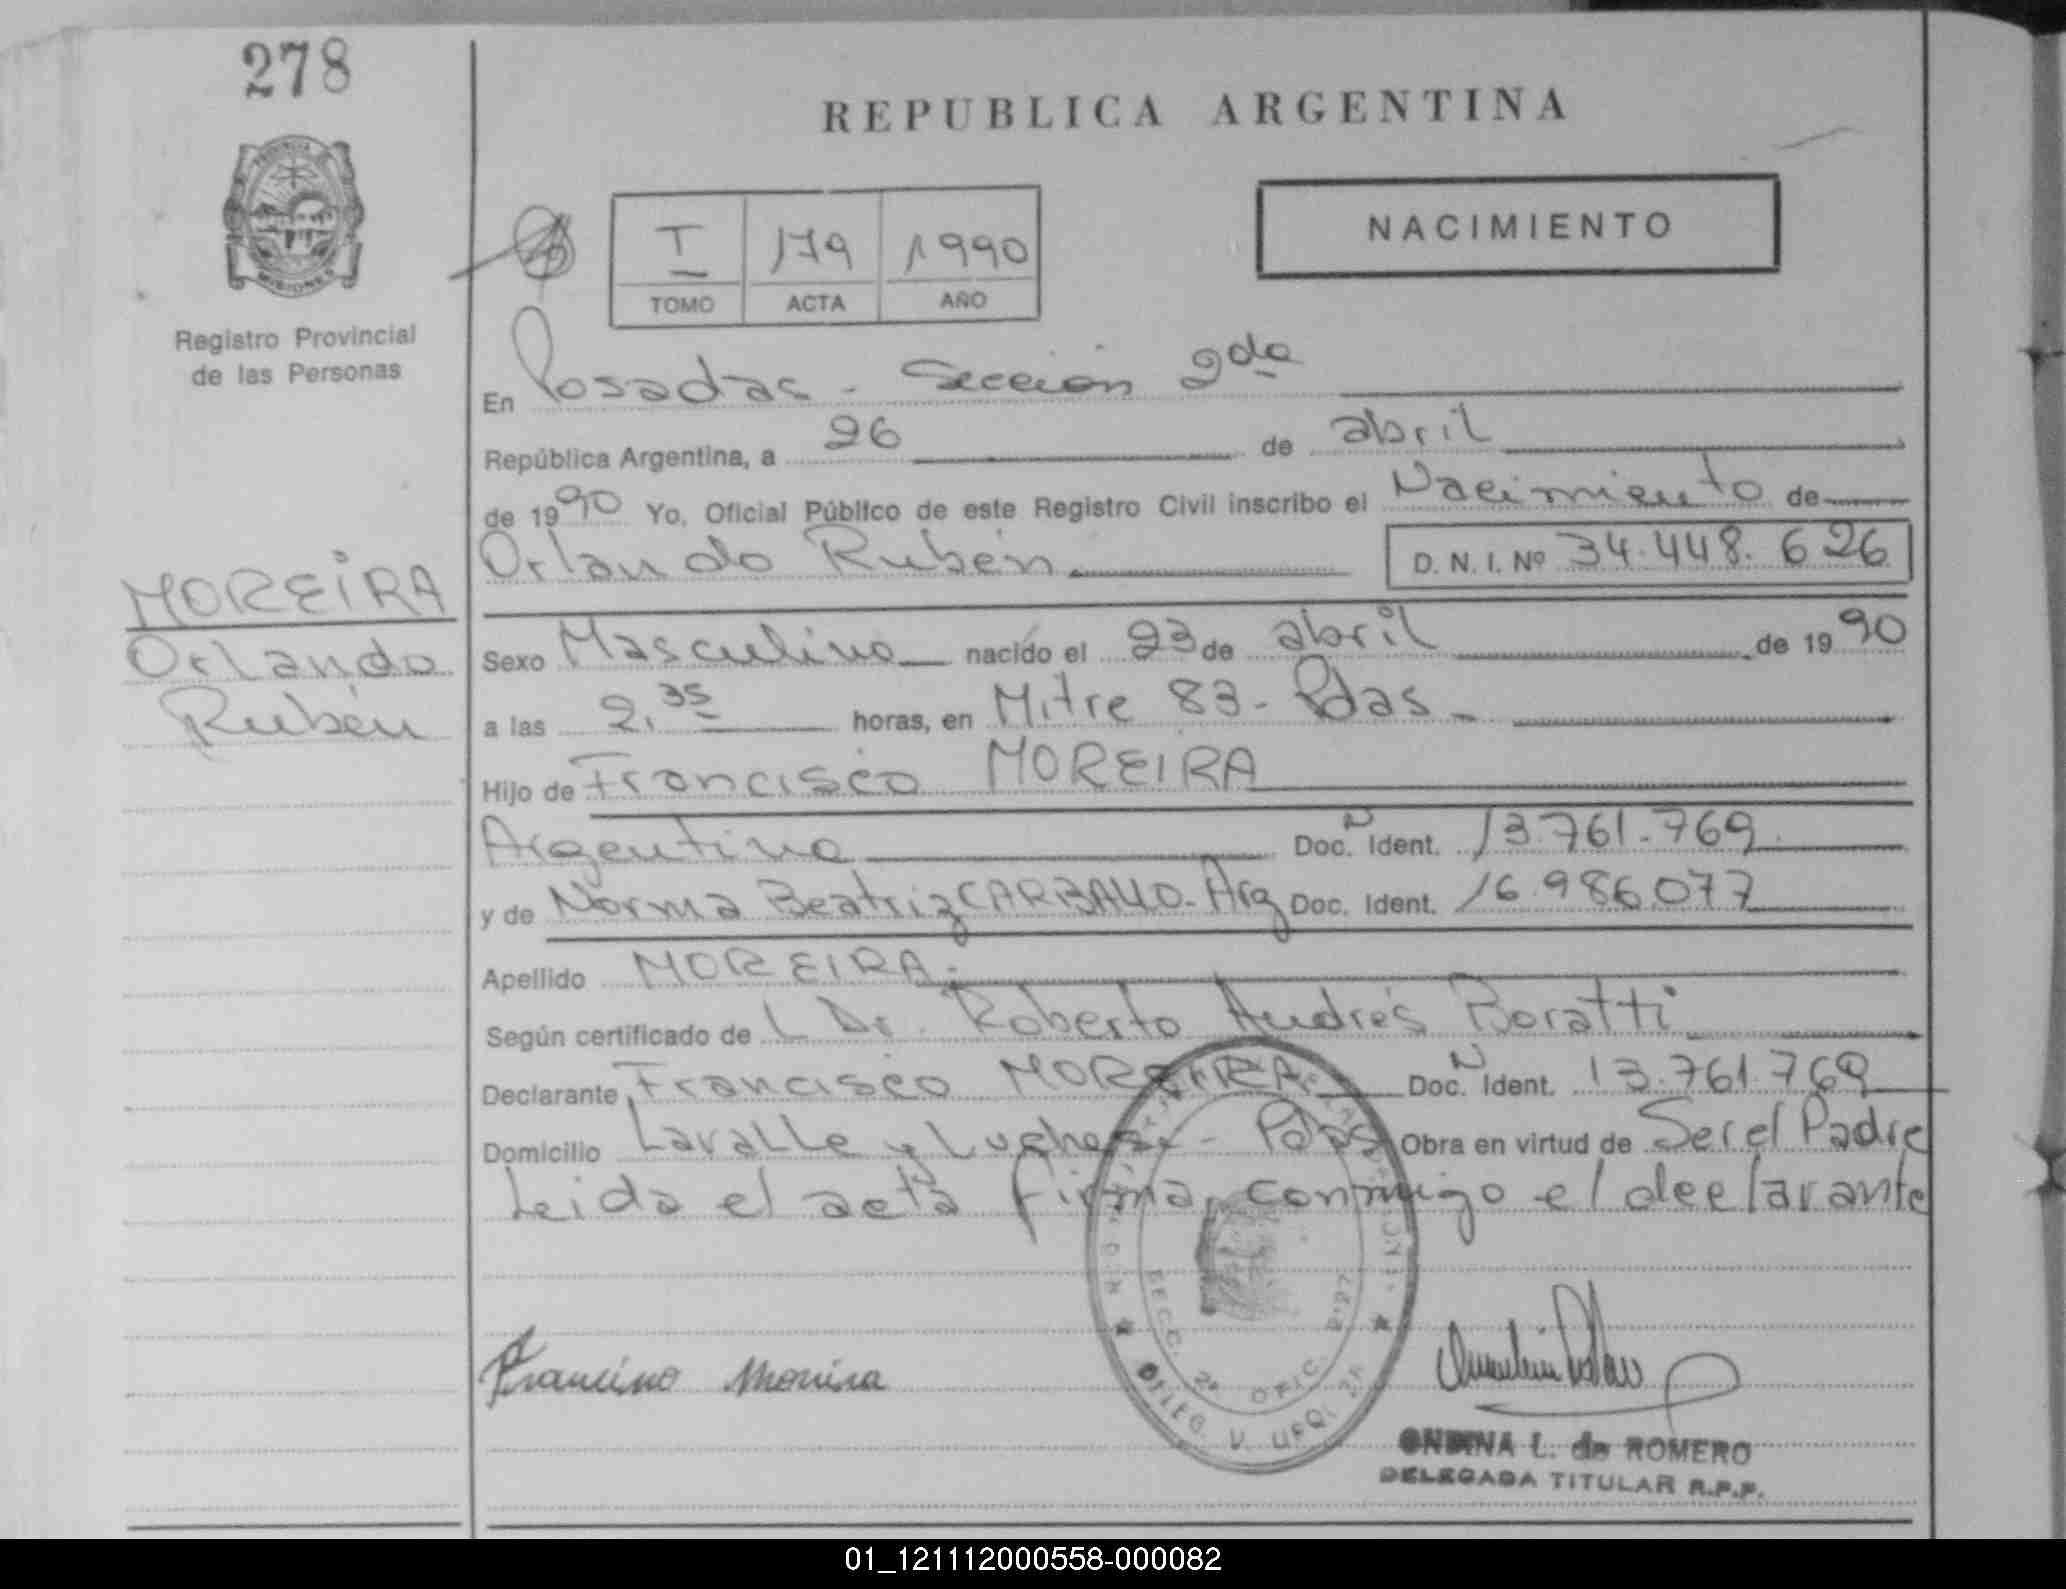 278
REPUBLICA ARGENTINA
PROVINCIA DE
MISIONES
Registro Provincial
de las Personas
T 179 1990
TOMO ACTA AÑO
NACIMIENTO
En Posadas - Sección 2da
República Argentina, a 26 de abril
de 1990 Yo, Oficial Público de este Registro Civil inscribo el Nacimiento de
Orlando Rubén D. N. I. Nº 34.448.626
MOREIRA
Orlando
Rubén
Sexo Masculino nacido el 23 de abril de 1990
a las 2,35 horas, en Mitre 83 - Pdas -
Hijo de Francisco MOREIRA
Argentino Doc. N Ident. 13.761.769
y de Norma Beatriz CARBALLO - Arg Doc. Ident. 16.986.077
Apellido MOREIRA.
Según certificado de L Dr. Roberto Andrés Boratti
Declarante Francisco MOREIRA Doc. N Ident. 13.761.769
Domicilio Lavalle y - Pdas Obra en virtud de Ser el Padre
Leida el acta firma conmigo el declarante
SECC. 2ª OFIC.
DELEG. V. URQUIZA
Francisco Moreira
ONDINA L. de ROMERO
DELEGADA TITULAR R.P.P.
01_121112000558-000082